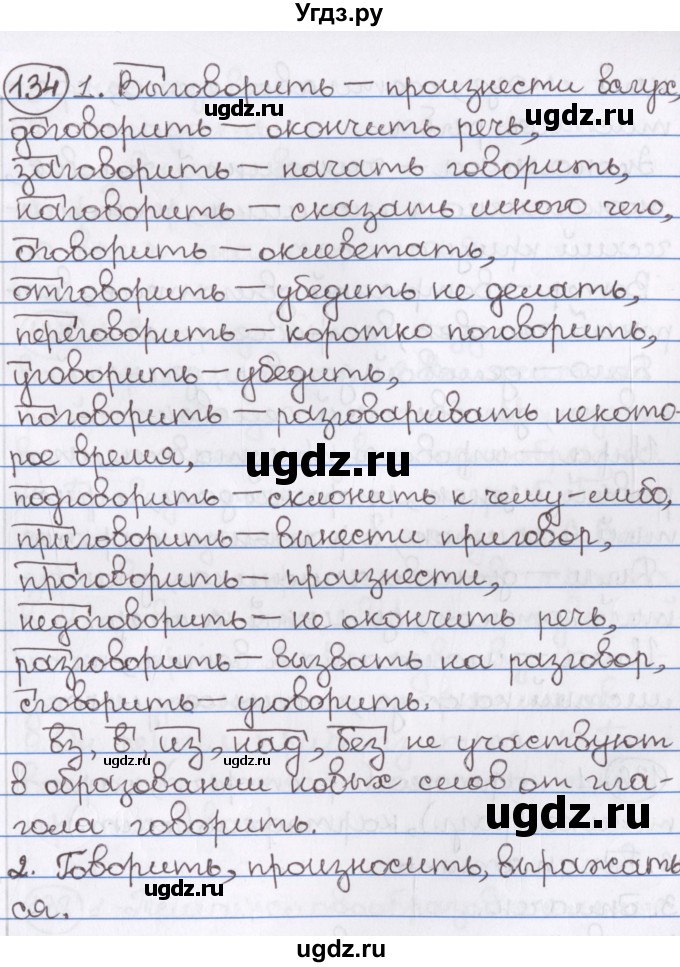 Угдз.ру
134 1. Выговорить – произнести вслух,
ugdz.ru
договорить – окончить речь,
заговорить – начать говорить,
наговорить – сказать много чего,
оговорить – оклеветать,
отговорить – убедить не делать,
переговорить – коротко поговорить,
уговорить – убедить,
поговорить – разговаривать некото-
рое время,
ugdz.ru
ugdz.ru
подговорить – склонить к чему-либо,
приговорить – вынести приговор,
проговорить – произнести,
недоговорить – не окончить речь,
разговорить – вызвать на разговор,
сговорить – уговорить.
вз, в, из, над, без не участвуют
в образовании новых слов от гла-
ugdz.ru
гола говорить.
2. Говорить, произносить, выражать
ugdz.ru
ся.
ugdz.ru